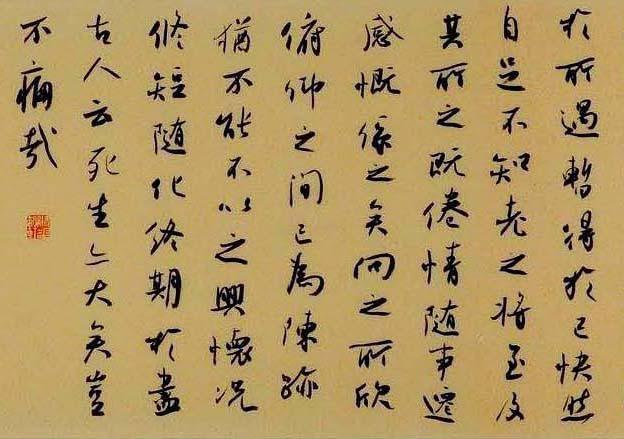 於所遇暫得於己快然
自足不知老之將至及
其所之既倦情隨事遷
感慨係之矣向之所欣
俯仰之間已為陳跡
猶不能不以之興懷況
脩短隨化終期於盡
古人云死生亦大矣豈
不痛哉